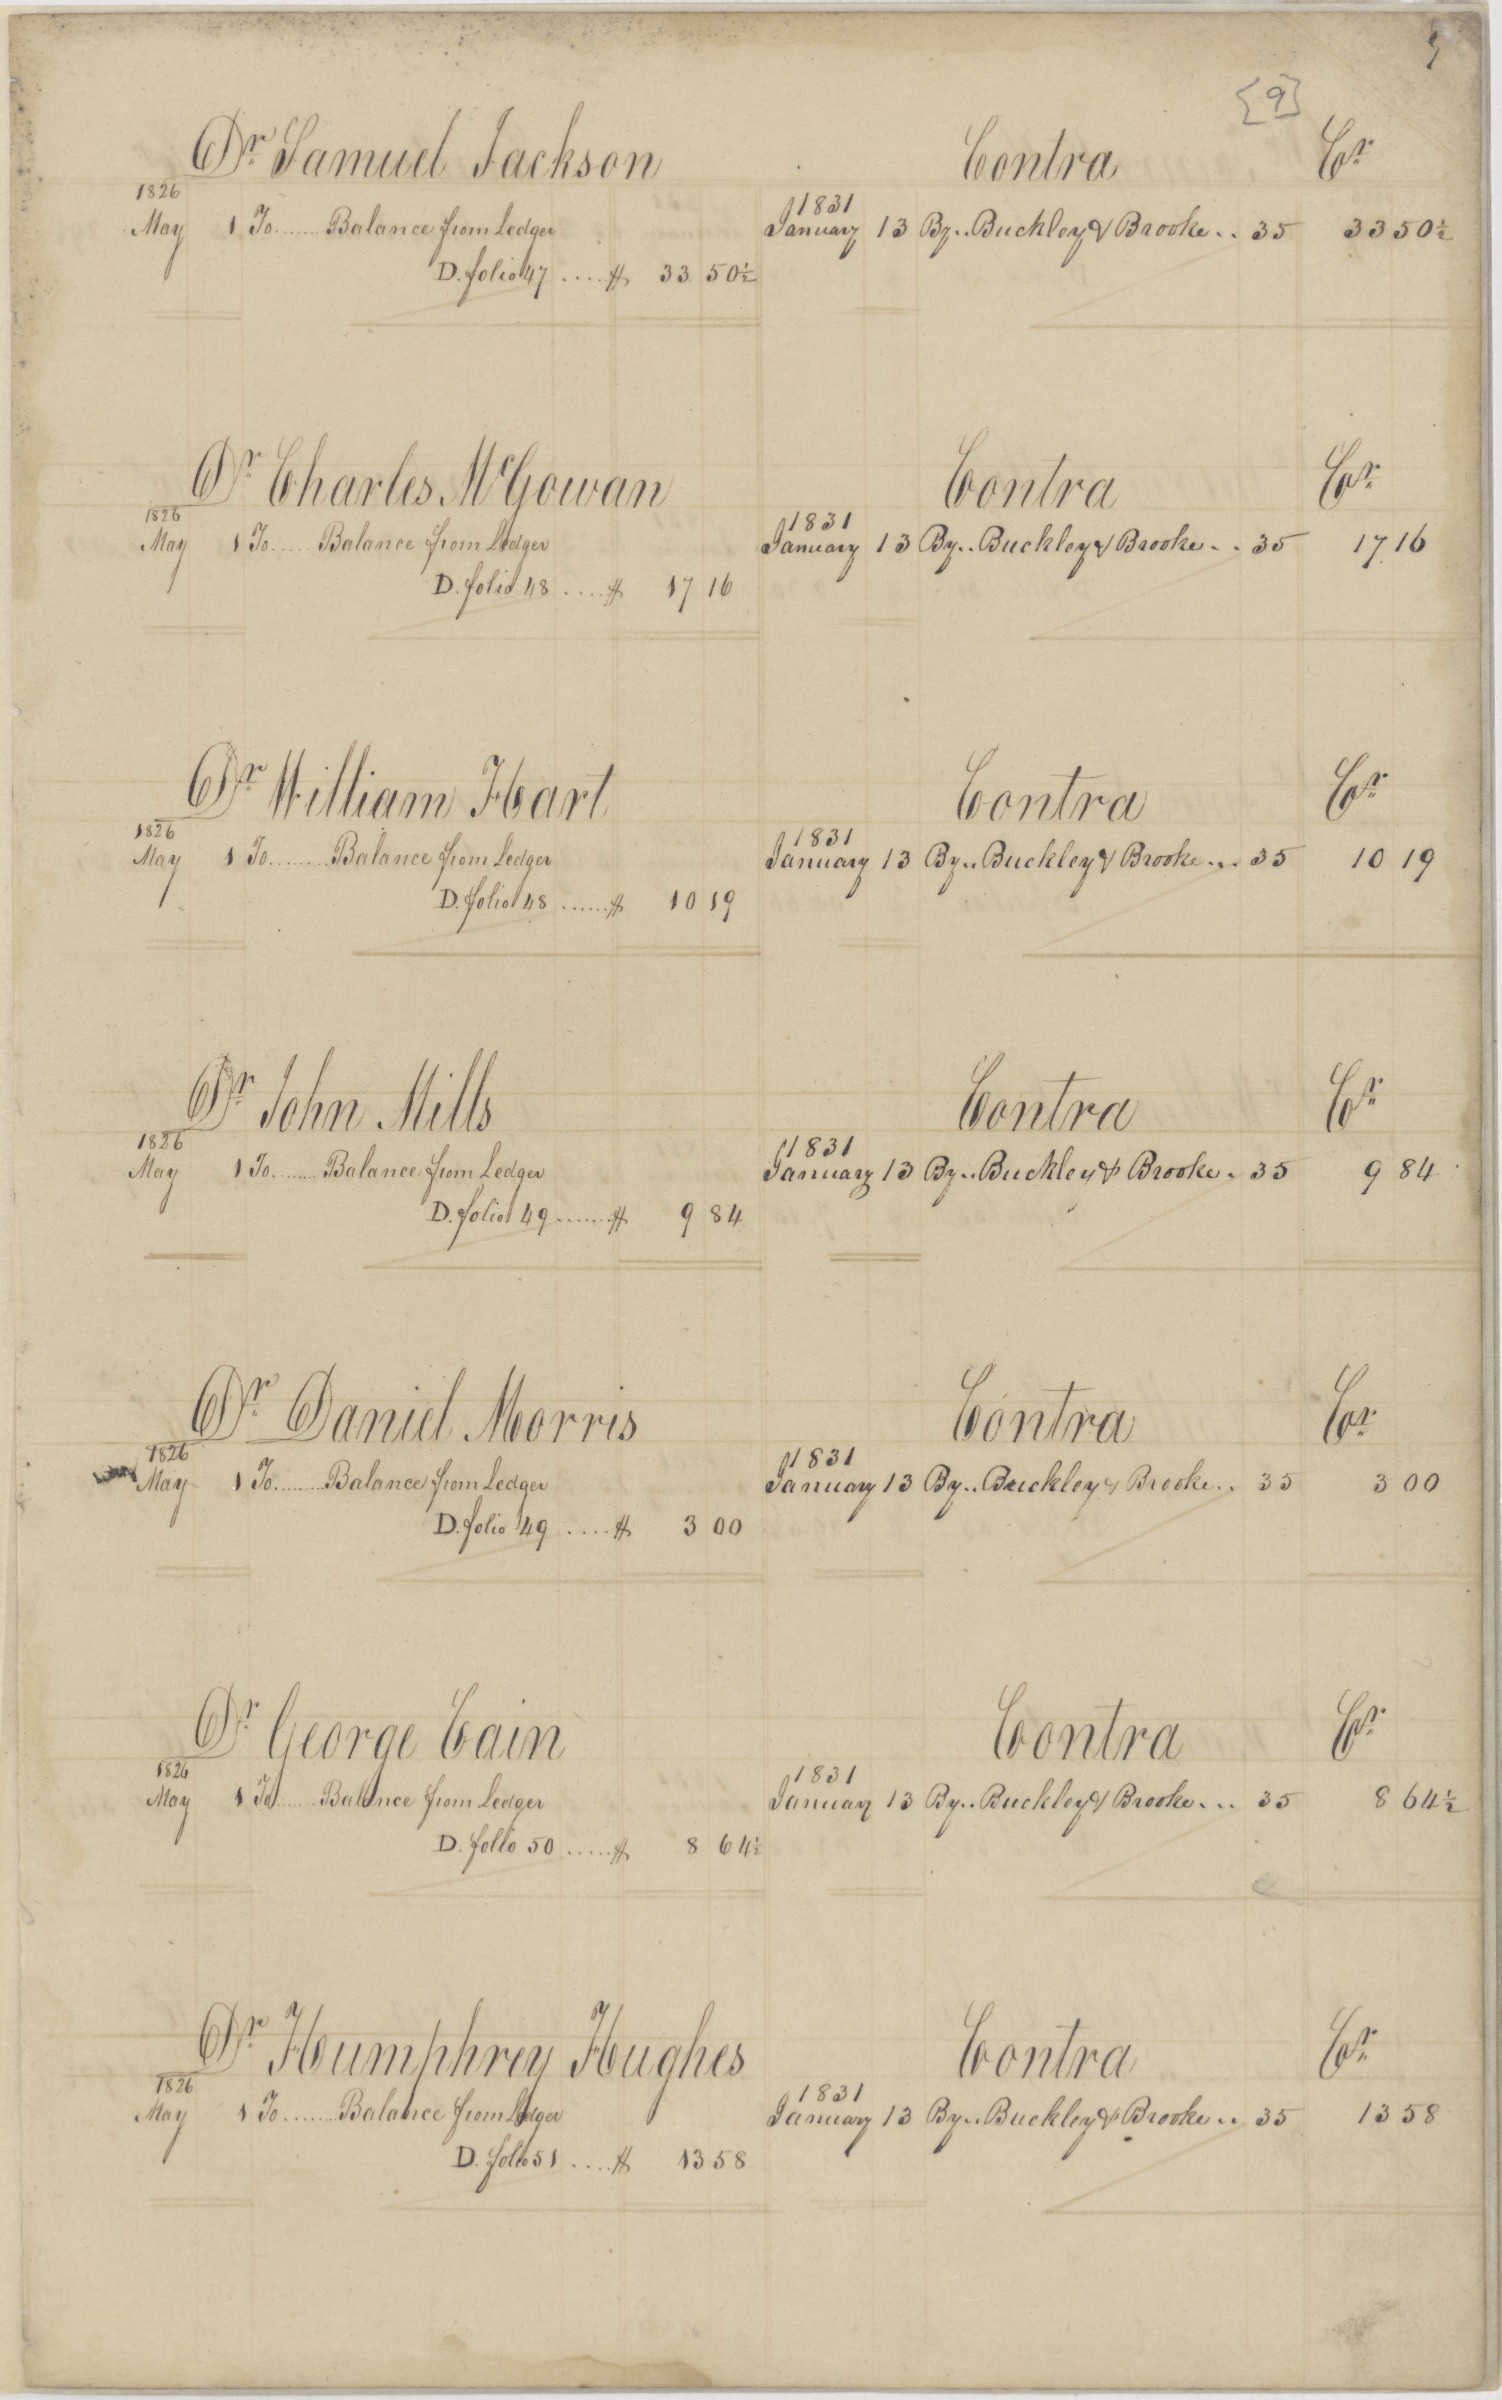 9
[9]
Dr Samuel Jackson Contra Cr
1826 1831
May 1 To ....... Balance from Ledger January 13 By .. Buckley & Brooke .. 35 33 50½
D. folio 47 .... $ 33 50½
Dr Charles McGowan Contra Cr
1826 1831
May 1 To ...... Balance from Ledger January 13 By .. Buckley & Brooke .. 35 17 16
D. folio 48 .... $ 17 16
Dr William Hart Contra Cr
1826 1831
May 1 To ........ Balance from Ledger January 13 By .. Buckley & Brooke ... 35 10 19
D. folio 48 ...... $ 10 19
Dr John Mills Contra Cr
1826 1831
May 1 To ....... Balance from Ledger January 13 By .. Buckley & Brooke . 35 9 84
D. folio 49 ....... $ 9 84
Dr Daniel Morris Contra Cr
1826 1831
May 1 To ....... Balance from Ledger January 13 By .. Buckley & Brooke .. 35 3 00
D. folio 49 .... $ 3 00
Dr George Cain Contra Cr
1826 1831
May 1 To ...... Balance from Ledger January 13 By .. Buckley & Brooke ... 35 8 64½
D. folio 50 ..... $ 8 64½
Dr Humphrey Hughes Contra Cr
1826 1831
May 1 To ....... Balance from Ledger January 13 By .. Buckley & Brooke .. 35 13 58
D. folio 51 .... $ 13 58